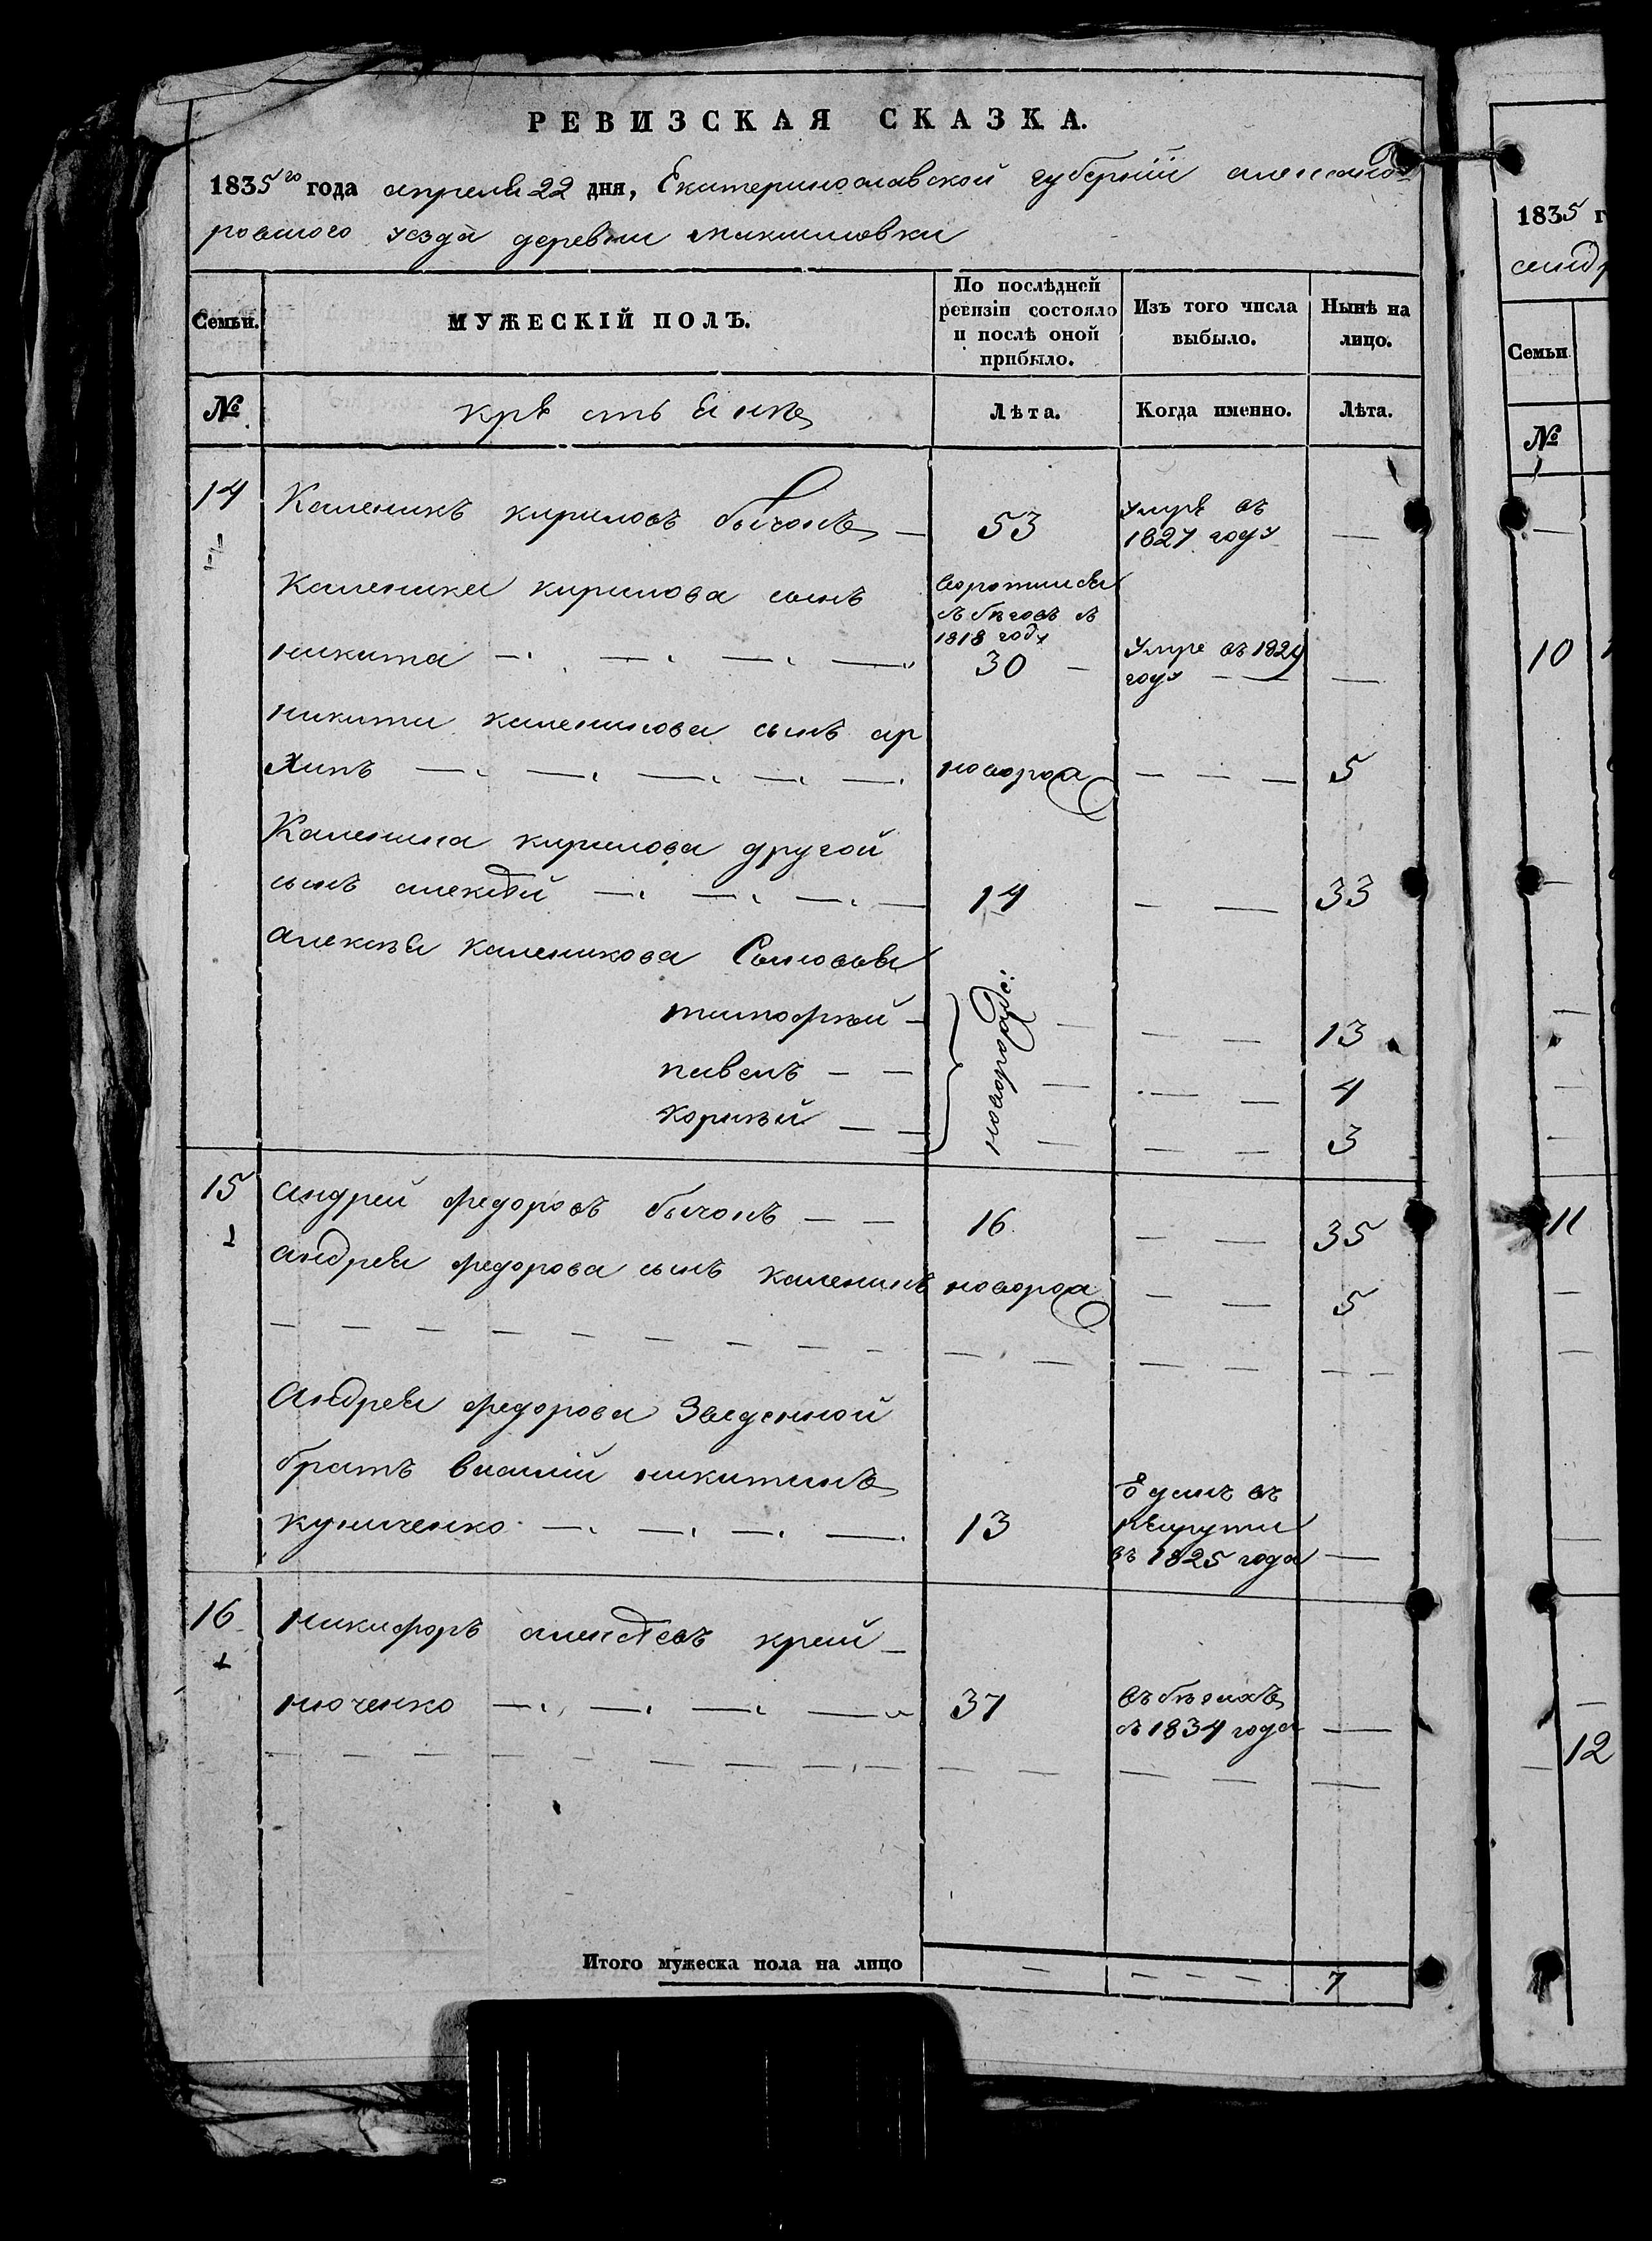 РЕВИЗСКАЯ СКАЗКА.
1835го года апреля 22 дня, Екатеринославской губернии александ-
ровского уезда деревни
Семьи. МУЖЕСКІЙ ПОЛЪ. По послѣдней ревизіи состояло и послѣ оной прибыло. Изъ того числа выбыло. Нынѣ на лицо.
№ Лѣта. Когда именно. Лѣта.
14 Каленикъ кириловъ бычокъ — 53 умре въ 1827 году —
Каленика кирилова сынъ
никита —. —. —. — 30 — умре въ 1829 году — — —
1818 году
никити каленикова сынъ ар
хипъ —. —. —. —. —. новорож — — — 5
Каленика кирилова другой
сынъ алексѣй —. —. —. — 14 — — 33
алексѣя каленикова Сыновья
тимофѣй — — — — 13
павелъ — — — — — 4
корнѣй — — — — — 3
15 андрей федоровъ бычокъ — — 16 — — 35
андрея федорова сынъ каленикъ новорож — — 5
Андрея федорова Зведенной
братъ василій никитинъ
куниченко —. —. —. —. 13 въ 1825 года —
16 никифоръ алексѣевъ край-
нюченко —. —. —. — 37 въ бѣгахъ съ 1834 года —
Итого мужеска пола на лицо — — — — 7
1835 г
Семьи
№
10
11
12